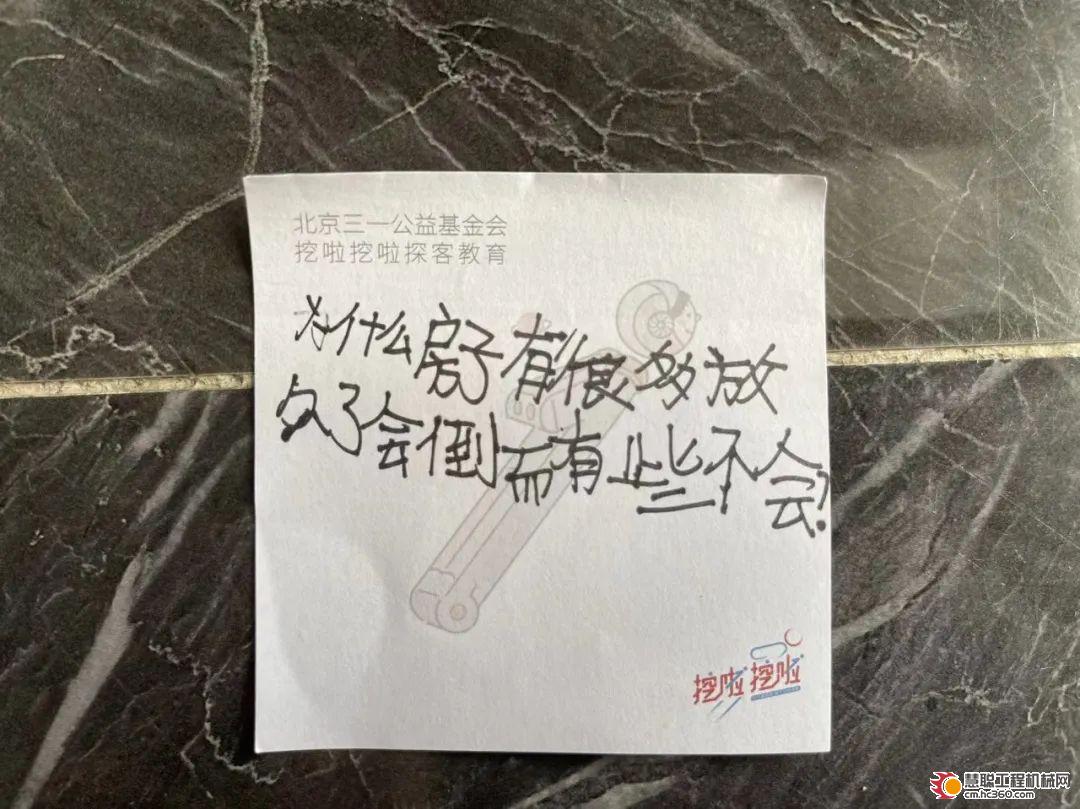 北京三一公益基金会
挖啦挖啦探客教育
为什么房子有很多放
久了会倒而有些不会?
挖啦挖啦
慧聪工程机械网
cm.hc360.com